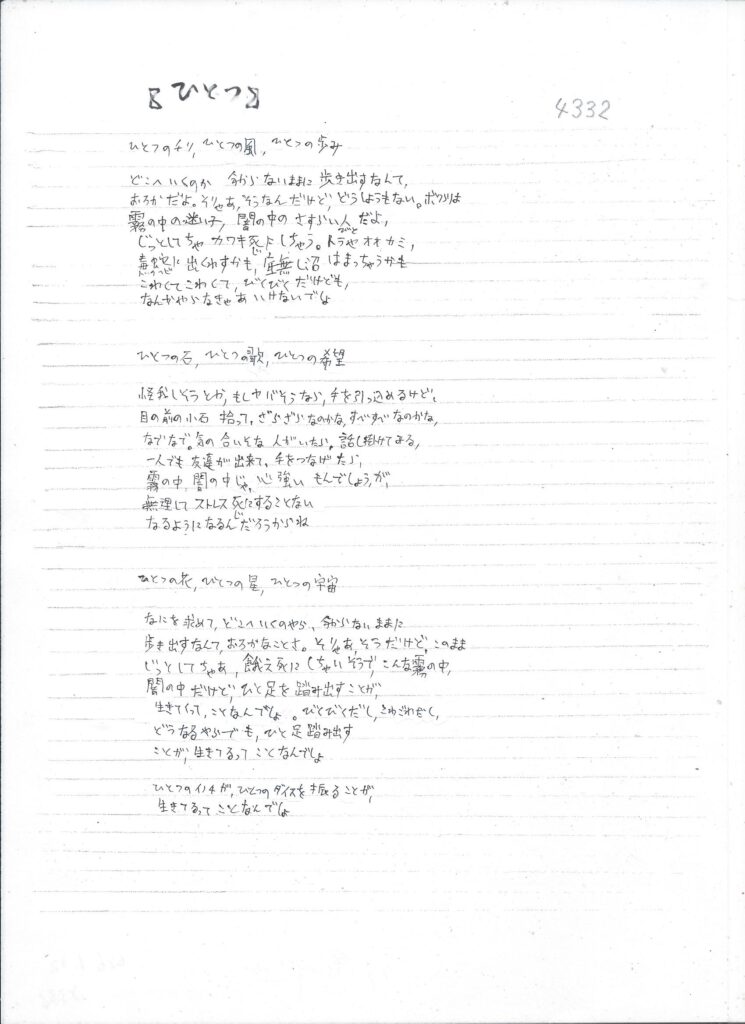 【ひとつ】
4332
ひとつのチリ,ひとつの風,ひとつの歩み
どこへいくのか 分からないままに 歩き出すなんて,
おろかだよ。そりゃあ,そうなんだけど,どうしようもない。ボクらは
霧の中の迷い子,闇の中の さすらい人だよ,
びと
じっとしてちゃ カワキ死にしちゃう。トラや オオカミ,
じ
毒蛇に 出くわすかも,底無し沼 はまっちゃうかも
こわくてこわくて,びくびくだけども,
なんかやらなきゃあ いけないでしょ
ひとつの石,ひとつの歌,ひとつの希望
怪我しそうとか,もしヤバそうなら,手を引っ込めるけど,
目の前の小石 拾って,ざらざらなのかな,すべすべなのかな,
なでなで。気の合いそな 人がいたら。話し掛けてみる,
一人でも 友達が出来て,手をつなげたら,
霧の中,闇の中じゃ,心強い もんでしょう,が,
無理して ストレス死にすることない
じ
なるようになるんだろうからね
ひとつの花,ひとつの星,ひとつの宇宙
なにを求めて,どこへいくのやら、分からないままに
歩き出すなんて,おろかなことさ。そりゃあ,そうだけど,このまま
じっとしてちゃあ,餓え死にしちゃいそうで,こんな霧の中,
闇の中だけど,ひと足を踏み出すことが,
生きてくって,ことなんでしょ。びくびくだし,こわごわだし,
どうなるやらでも,ひと足踏み出す
ことが,生きてるって ことなんでしょ
ひとつのイノチが,ひとつのダイスを振ることが,
生きてるって ことなんでしょ